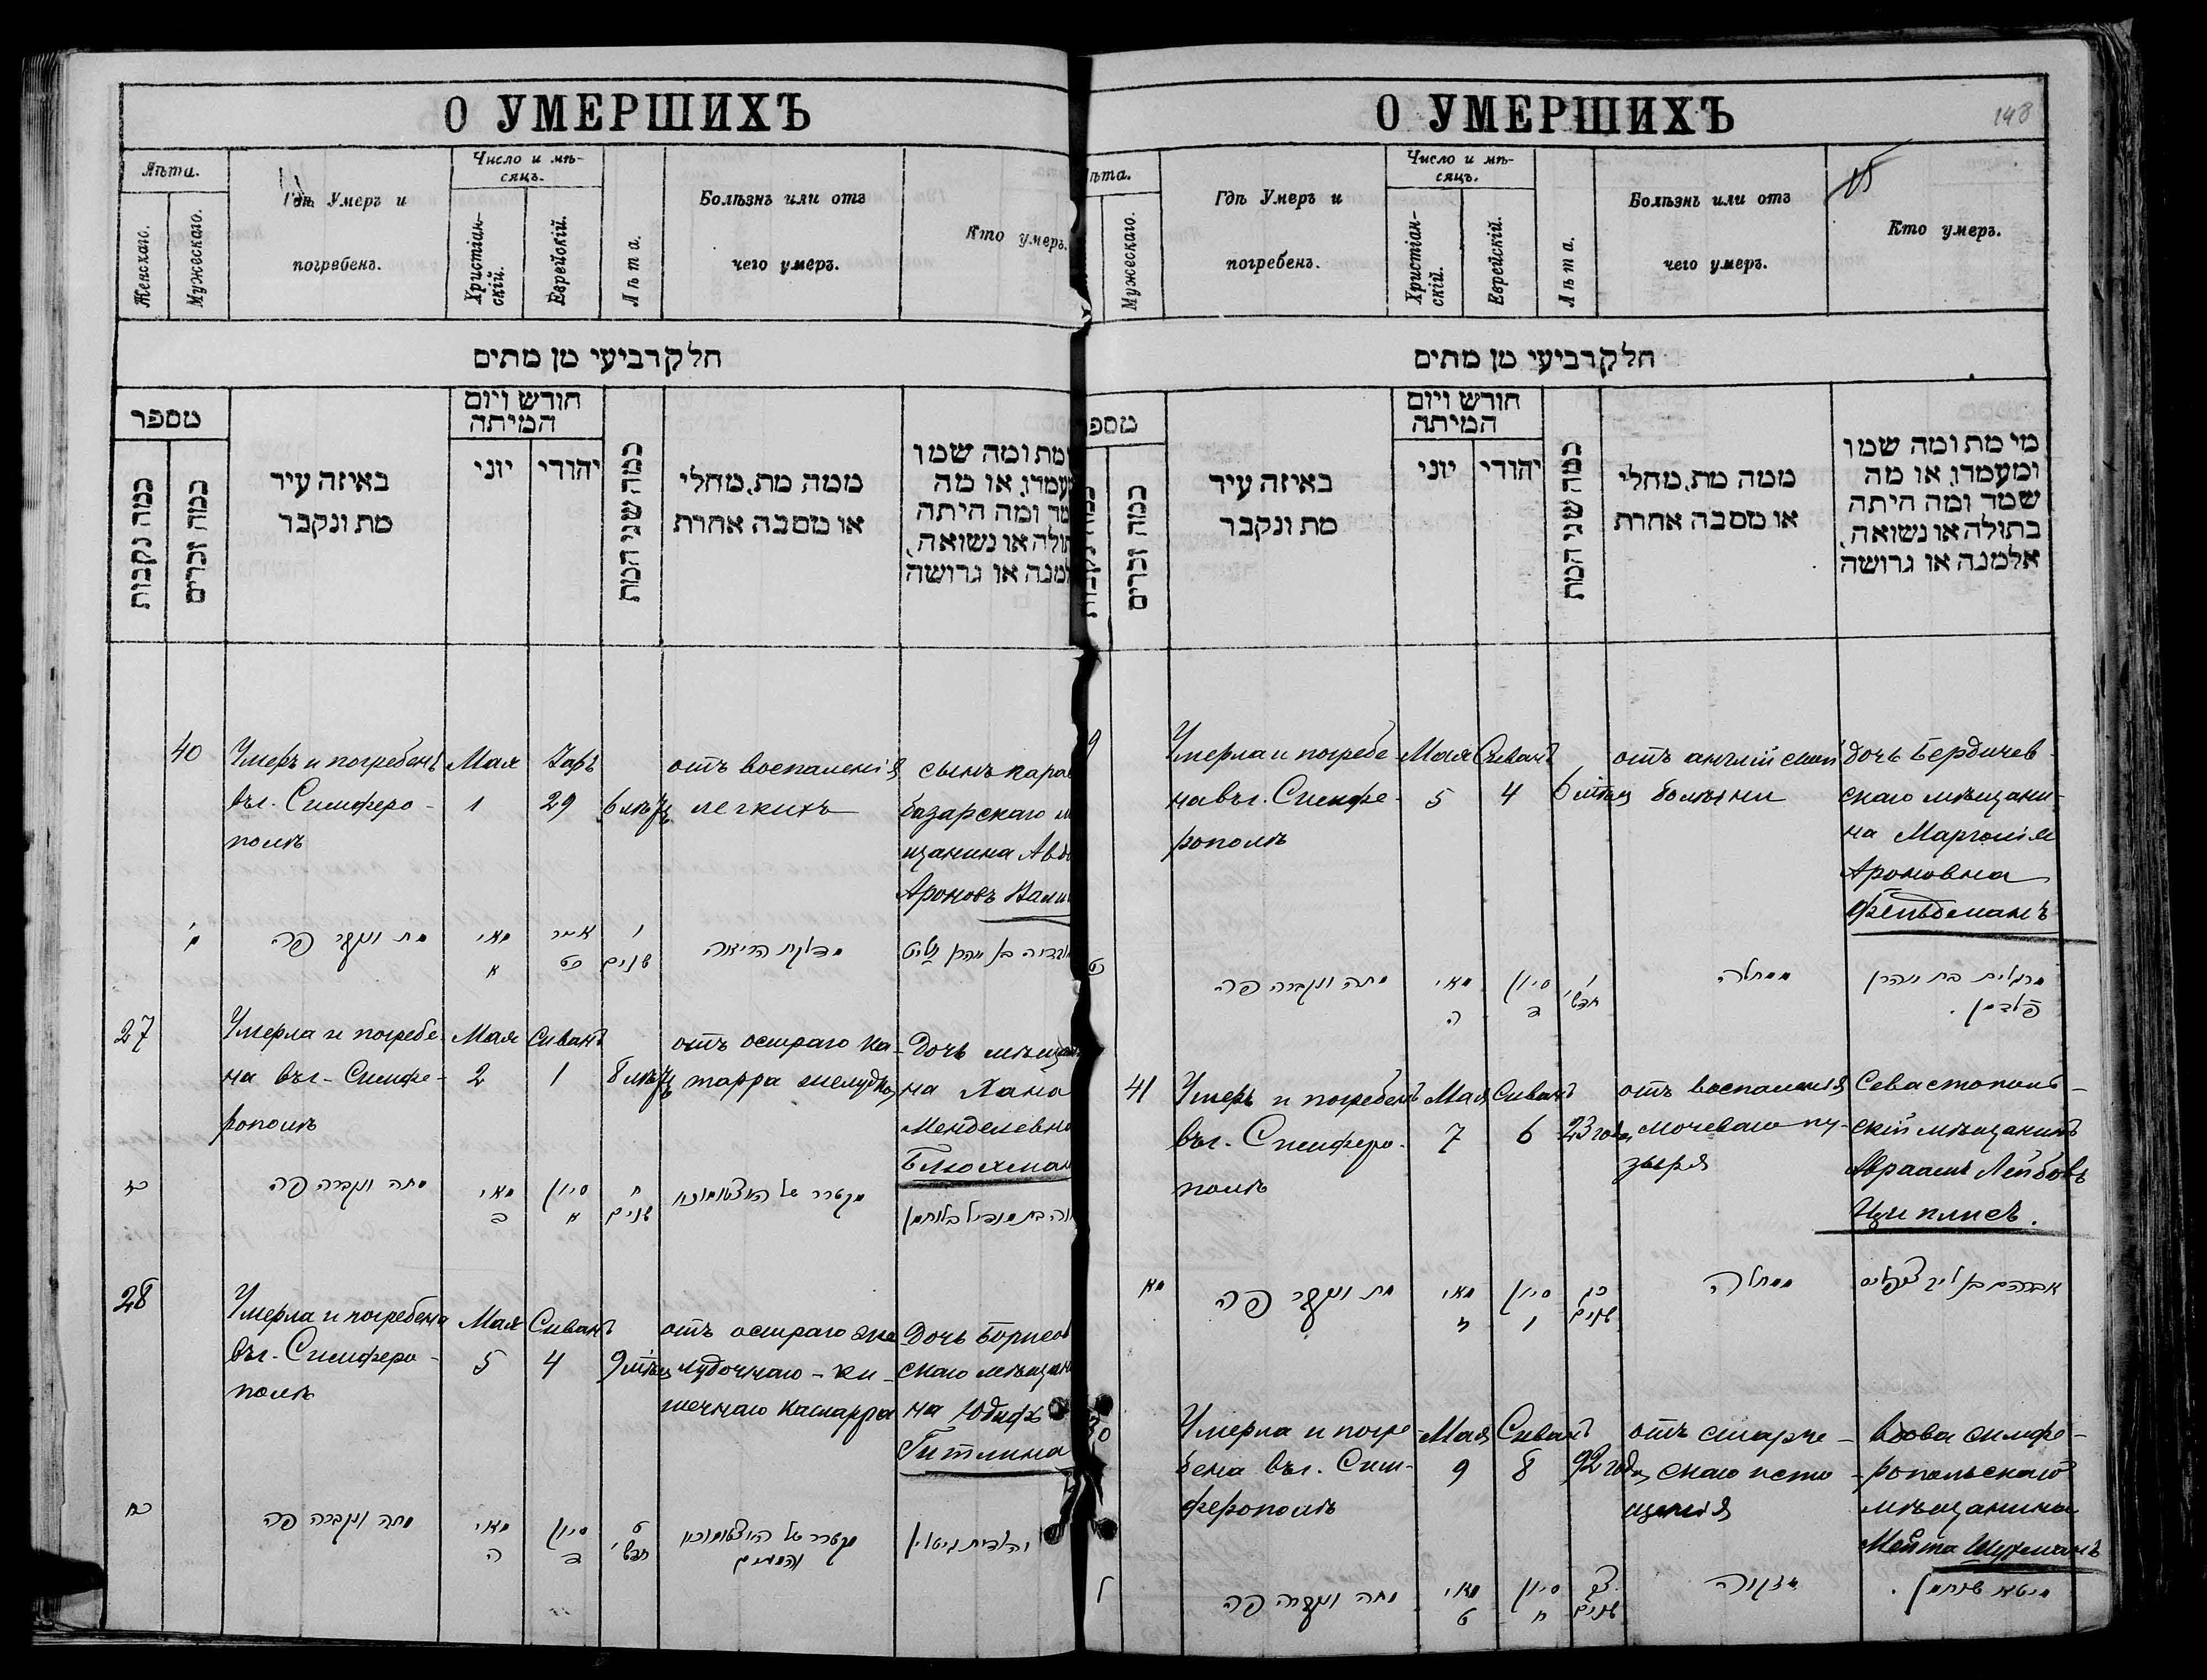 О УМЕРШИХЪ
Лѣта.
Женскаго.
Мужескаго.
Гдѣ Умеръ и
погребенъ.
Число и мѣ-
сяцъ.
Христіан-
скій.
Еврейскій.
Лѣта.
Болѣзнь или отъ
чего умеръ.
Кто умеръ.
חלק רביעי מן מתים
מספר
כמה נקבות
כמה זכרים
באיזה עיר
מת ונקבר
חודש ויום
המיתה
יוני
יהודי
כמה שני המת
ממה מת, מחלי
או מסבה אחרת
מת ומה שמו
או מה
ומה היתה
או נשואה,
או גרושה
40
Умеръ и погребенъ
въ г. Симферо-
полѣ
Мая
1
29
6
отъ воспаленія
легкихъ
сынъ
базарскаго
щанина
Ароновъ
מת ונקבר פה
מאי
א
אייר
כט
ו
שנים
מדלקת הריאה
27
Умерла и погребе-
на въ г. Симфе-
рополѣ
Мая
2
Сиванъ
1
8
отъ остраго ка-
тарра желудка
Дочь
на Хана
מתה ונקברה פה
מאי
ב
סיון
א
ח
שנים
28
Умерла и погребена
въ г. Симферо-
полѣ
Мая
5
Сиванъ
4
9
отъ остраго же-
лудочнаго-ки-
шечнаго катарра
Дочь
скаго
на Юдифь
Гитлина
כח
מתה ונקברה פה
מאי
ה
סיון
ד
ט
חדשי
О УМЕРШИХЪ
148
Мужескаго.
Гдѣ Умеръ и
погребенъ.
Число и мѣ-
сяцъ.
Христіан-
скій.
Еврейскій.
Лѣта.
Болѣзнь или отъ
чего умеръ.
Кто умеръ.
חלק רביעי מן מתים
כמה זכרים
באיזה עיר
מת ונקבר
חודש ויום
המיתה
יוני
יהודי
כמה שני המת
ממה מת, מחלי
או מסבה אחרת
מי מת ומה שמו
ומעמדו, או מה
שמה ומה היתה
בתולה או נשואה,
אלמנה או גרושה
9
Умерла и погребе-
на въ г. Симфе-
рополѣ
Мая
5
Сиванъ
4
6
отъ англійской
болѣзни
дочь Бердичев-
скаго мѣщани-
на Марголія
Ароновна
Фельдманъ
מתה ונקברה פה
מאי
ה
סיון
ד
ו
חדשי
ממחלה
מרגלית בת אהרן
פלדמן.
41
Умеръ и погребенъ
въ г. Симферо-
полѣ
Мая
7
Сиванъ
6
23 года
отъ воспаленія
мочеваго пу-
зыря
Севастополь-
скій мѣщанинъ
Авраамъ Лейбовъ
Циплисъ.
מא
מת ונקבר פה
מאי
ז
סיון
ו
כג
שנים
ממחלה
30
Умерла и погре-
бена въ г. Сим-
ферополѣ
Мая
9
Сиванъ
8
92 года
отъ старче-
скаго исто-
щенія
вдова симфе-
ропольскаго
мѣщанина
Мейта Шухманъ
ל
מתה ונקברה פה
מאי
ט
סיון
ח
צב
שנים
מזקנה
מיטא שוחמן.